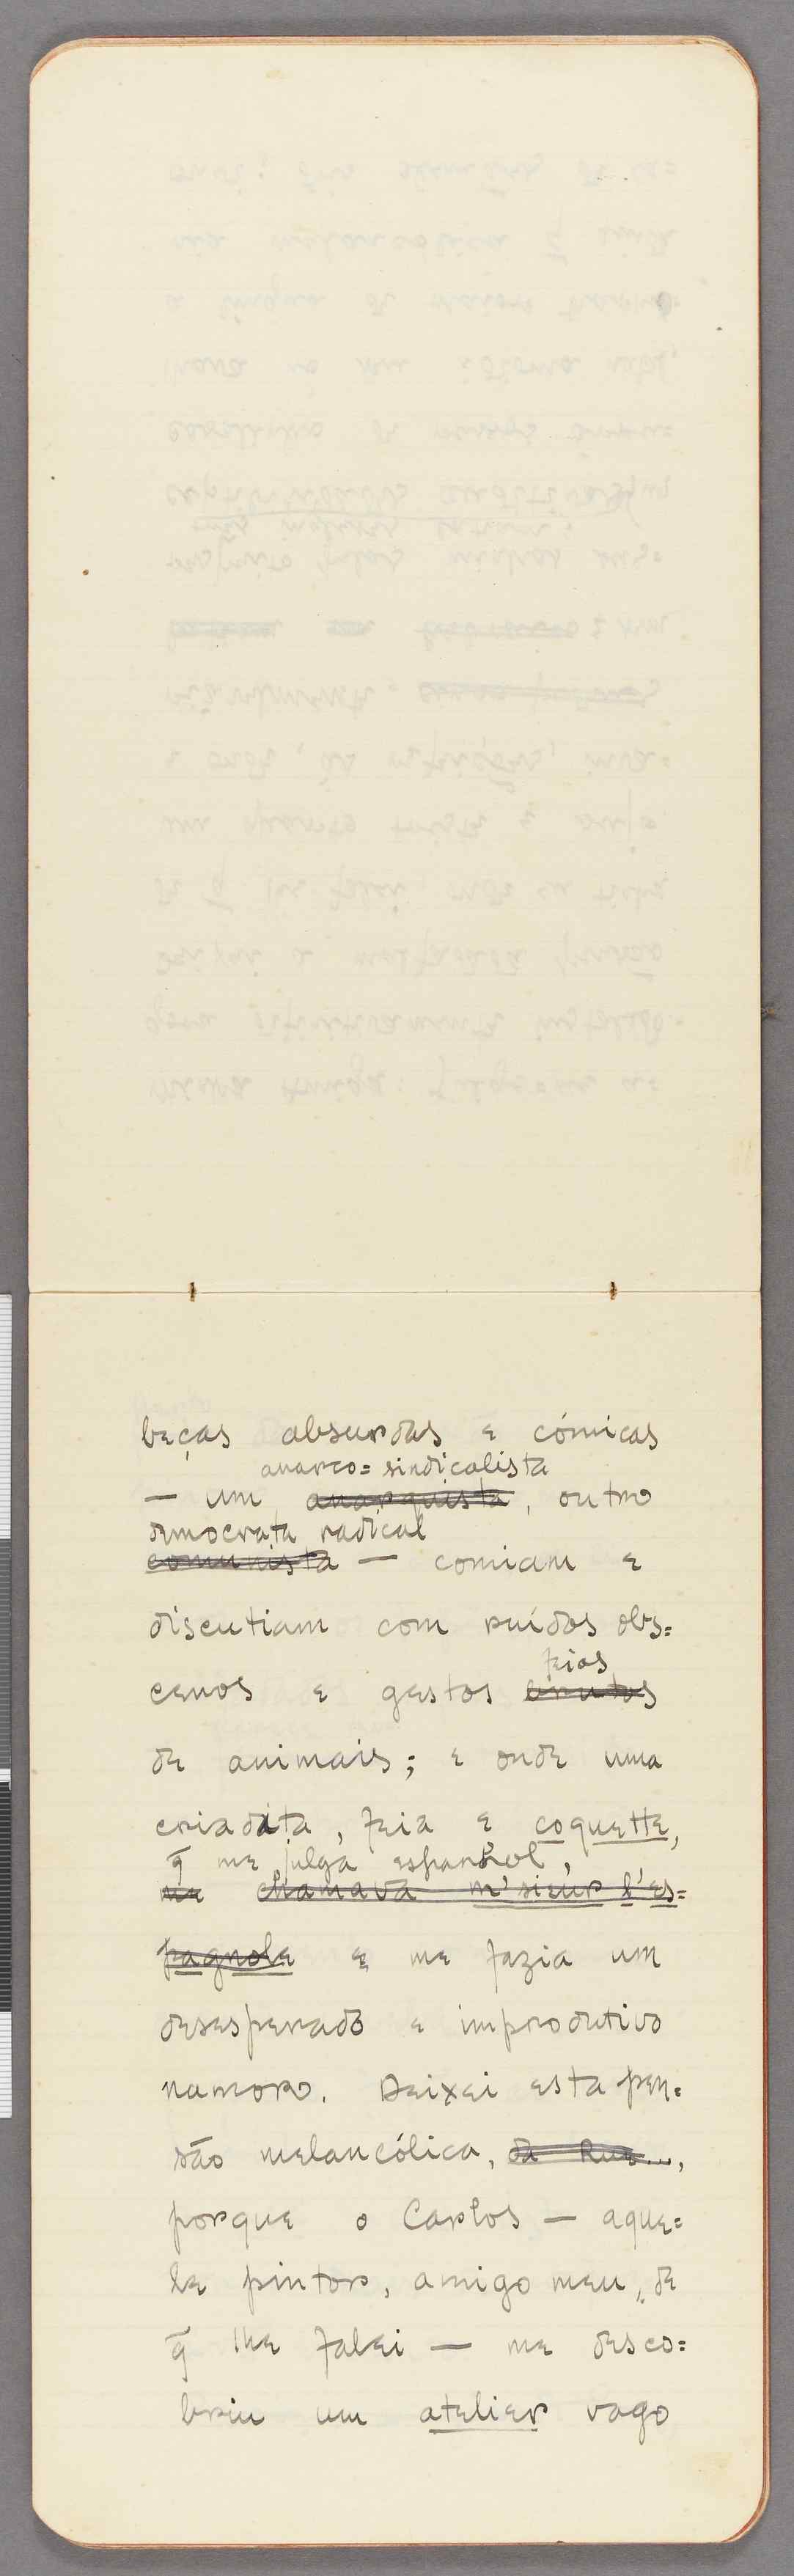 beças absurdas e cómicas
anarco=sindicalista
— um anarquista, outro
democrata radical
comunista — comiam e
discutiam com ruídos obs=
feios
cenos e gestos brutos
de animais; e onde uma
criadita, feia e coquette,
q̄ me julga espanhol,
me chamava m'sieur l'es=
pagnole e me fazia um
desesperado e improdutivo
namoro. Deixei esta pen=
são melancólica, da Rue...,
porque o Carlos — aque=
le pintor, amigo meu, de
q̄ lhe falei — me desco=
briu um atelier vago